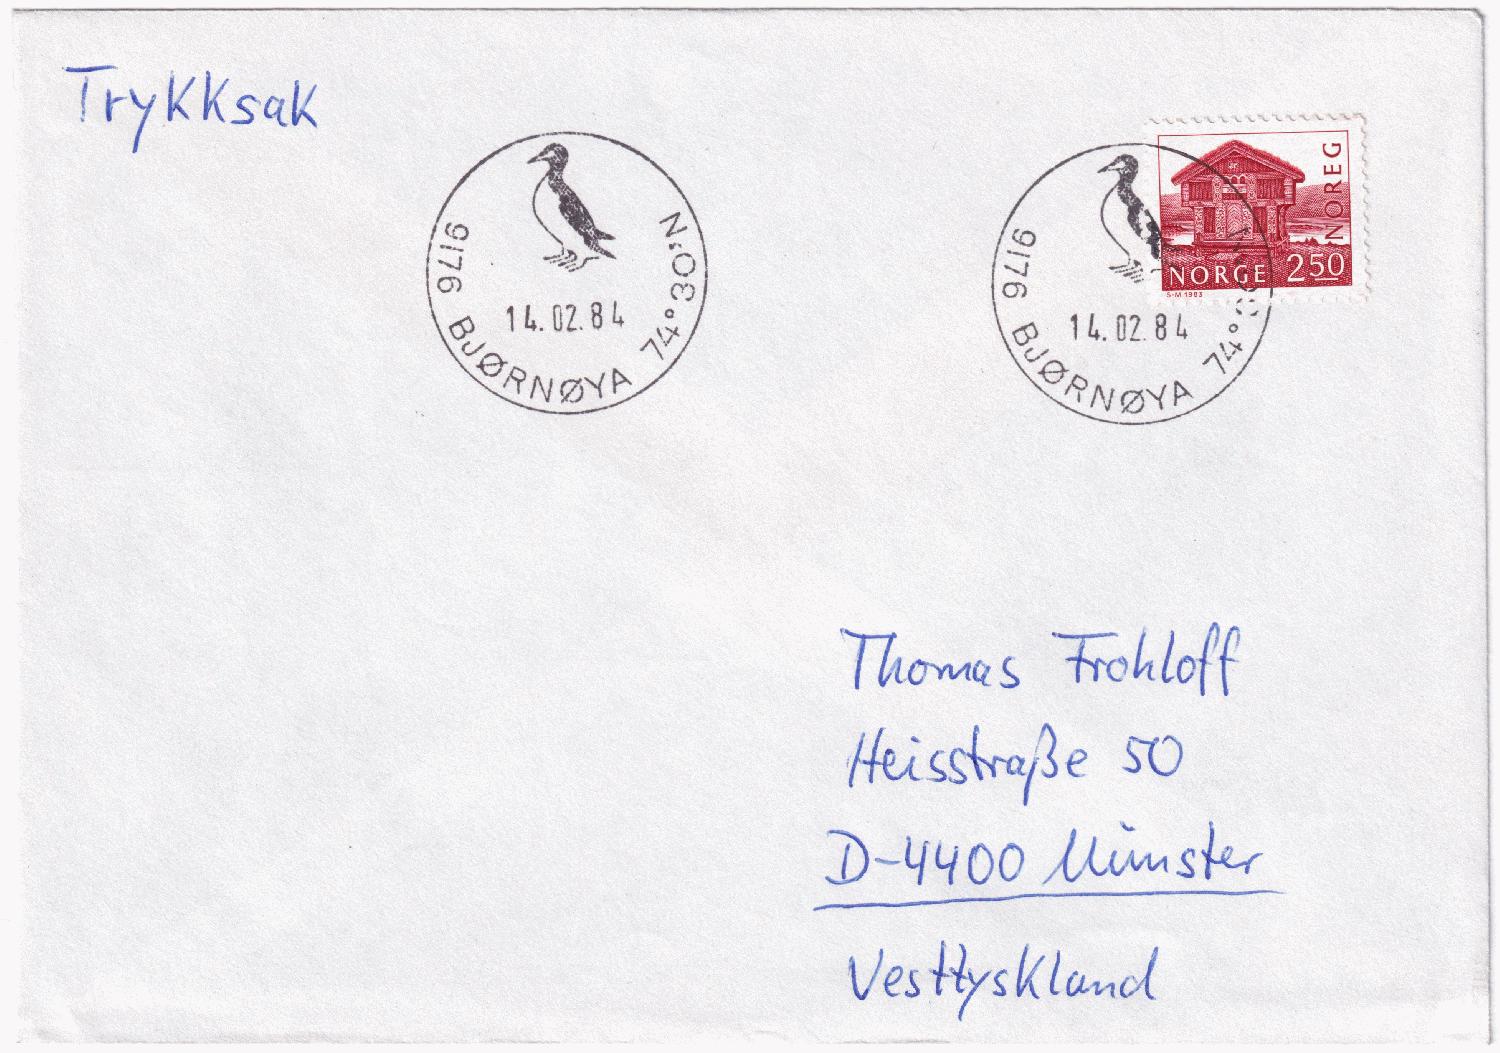 Trykksak
9176 BJØRNØYA 74°30'N.
14.02.84
9176 BJØRNØYA 74°30'N.
14.02.84
NOREG
NORGE 250
S-M 1983
Thomas Frohloff
Heisstraße 50
D-4400 Münster
Vesttyskland